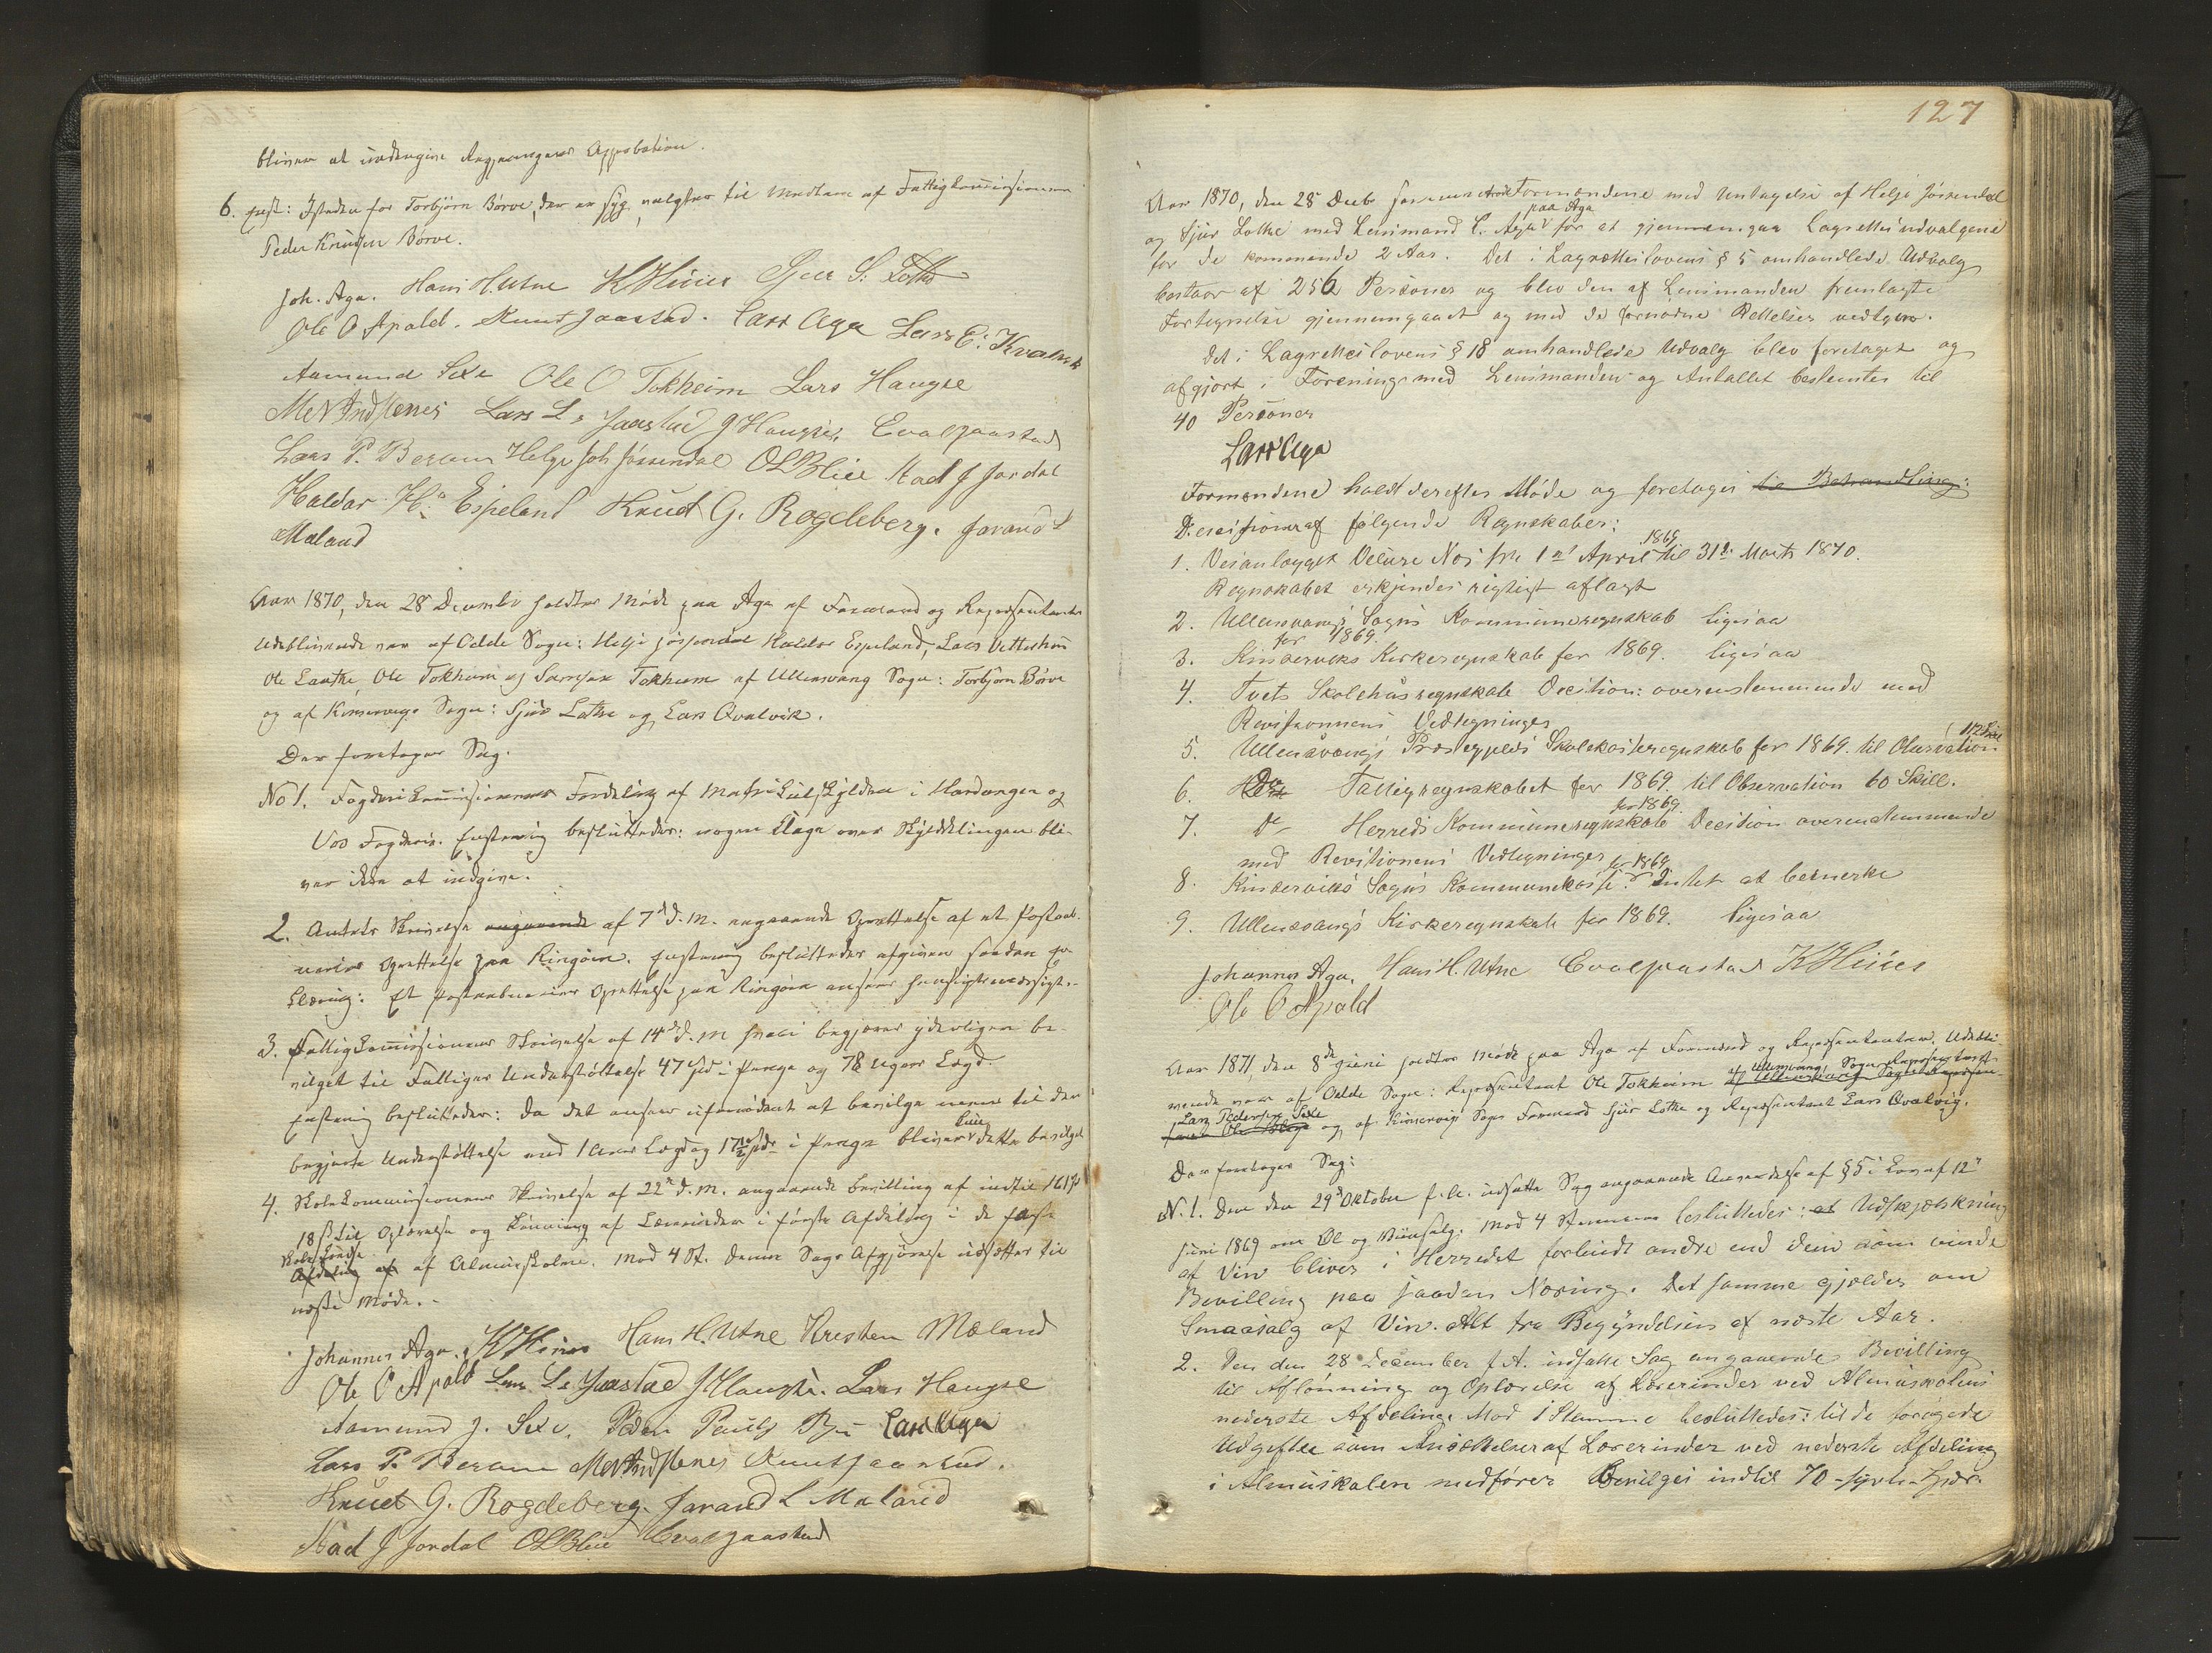 bliver at undergive Regjeringens Approbation.
6. Enst: Istedenfor Torbjörn Börve, der er syg, valgtes til Medlem af Fattigkommissionen
Peder Knudsen Börve.
Joh. Aga. Hans H. Utne K Hines Sjur S. Lothe
Ole O Apald. Knut Jaastad. Lars Aga Lars E: Kvalvik
Aamund Sexe Ole O Tokheim Lars Haugse
Lars L. Jaastad J Haugse. Evaljaastad
Lars P. Beraue Helge Joh Jösendal OLBleie Aad J Jordal
Haldor H. Espeland Knud G. Rogdeberg. Jarand L
Mæland
Aar 1870, den 28 December holdtes Møde paa Aga af Formænd og Repræsentanter
Udeblivende var af Odde Sogn: Helje Jösendal Haldor Espeland, Lars Vetterhus
Ole Lauthe, Ole Tokheim og Samson Tokheim af Ullensvang Sogn: Torbjörn Börve
og af Kinservigs Sogn: Sjur Lothe og Lars Qvalvik.
Der foretoges Sag.
No 1. Fogderikommissionens Fordeling af Matrikulskylden i Hardanger og
Vos Fogderi. Enstemmig besluttedes: nogen Klage over Skylddelingen bli-
ver ikke at indgive.
2. Amtets Skrivelse angaaende af 7d d.M. angaaende Oprettelse af et Postaab-
neries Oprettelse paa Ringöen. Enstemmig besluttedes afgiven saadan Er-
klæring: Et Postaabneries Oprettelse paa Ringöen ansees hensigtsmæssigt.-
3. Fattigkommissionens Skrivelse af 14d d.M hvori begjæres yderligere be-
vilget til Fattiges Understöttelse 47 Spd i Penge og 78 Ugers Lægd.
Enstemmig besluttedes: da det ansees ufornödent at bevilge mere til den
begjærte Understöttelse end 1 Aars Lægd og 17½ Spd i Penge bliver kun dette bevilget
4. Skolekommissionens Skrivelse af 22d d.M. angaaende Bevilling af indtil 161 Spd
18 ß til Oplærelse og Lönning af Lærerinder i förste Afdeling i de faste
Skolekredse
Afdeling af af Almueskolen. Mod 4 St. denne Sags Afgjörelse udsættes til
næste Möde.-
Johannes Aga. K Hines Hans H. Utne Kresten Mæland
Ole O Apald Lars L. Jaastad J Haugse. Lars Haugse
Aamund J. Sexe. Peder Pauls Bu Lars Aga
Lars P. Beraue Knut Jaastad.
Knud G. Rogdeberg. Jarand L Mæland
Aad J Jordal OLBleie Evaljaastad
127
Aar 1870, den 28 Decb sammentraadte Formændene med Untagelse af Helje Jösendal
paa Aga
og Sjur Lothe med Lensmand L. Aga for at gjennemgaa Lagretteudvalgene
for de kommende 2 Aar. Det i Lagrettelovens § 5 omhandlede Udvalg
bestaar af 256 Personer og blev den af Lensmanden fremlagte
Fortegnelse gjennemgaaet og med de fornødne Rettelser vedtagen.
Det i Lagrettelovens § 18 omhandlede Udvalg blev foretaget og
afgjort i Forening med Lensmanden og Antallet bestemtes til
40 Personer
Lars Aga
Formændene holdt derefter Möde og foretoges til Behandling:
Decision af følgende Regnskaber:
1. Veianlægget Velure Næs fra 1ste April 1869 til 31te Marts 1870.
Regnskabet erkjendes rigtigt aflagt
2. Ullensvangs Sogns Kommuneregnskab ligesaa
for 1869.
3. Kinserviks Kirkeregnskab for 1869. ligesaa
4. Tvets Skolehusregnskab Decition: overenstemmende med
Revisionens Vedtegninger
5. Ullensvangs Præstegjelds Skolekasseregnskab for 1869. til Observation 112 Skil
6. Do Fattigregnskabet for 1869. til Observation 60 Skill.
7. do Herreds Kommuneregnskab for 1869 Decition overenstemmende
med Revitionens Vedtegninger
8. Kinserviks Sogns Kommunekasse for 1869 Intet at bemerke
9. Ullensvangs Kirkeregnskab for 1869. ligesaa
Johannes Aga, Hans H. Utne Evaljaastad K Hines
Ole O Apald
Aar 1871, den 8de Juni holdtes Möde paa Aga af Formænd og Repræsentanter. Udebli-
vende var af Odde Sogn: Repræsentant Ole Tokheim af Ullensvang Sogn Repræsentant
Lars Pedersen Sexe og af Kinservigs Sogn Formand Sjur Lothe og Repræsentant Lars Qvalvig.
Der foretoges Sag:
N. 1. Den den 29d Oktober f. A. udsatte Sag angaaende Anvendelse af § 5 i Lov af 12te
Juni 1869 om Øl og Vinsalg. Mod 4 Stemmer besluttedes: at Udskjenkning
af Vin bliver i Herredet forbudt andre end dem som vinde
Bevilling paa saadan Næring. Det samme gjælder om
Smaasalg af Vin. Alt fra Begyndelsen af næste Aar.
2. Den den 28 December f A. udsatte Sag angaaende Bevilling
til Aflönning og Oplærelse af Lærerinder ved Almueskolens
nederste Afdeling. Mod 1 Stemme besluttedes: til de forögede
Udgifter som Ansættelser af Lærerinder ved nederste Afdeling
i Almueskolen medfører Bevilges indtil 70 - syvti - Spdr.